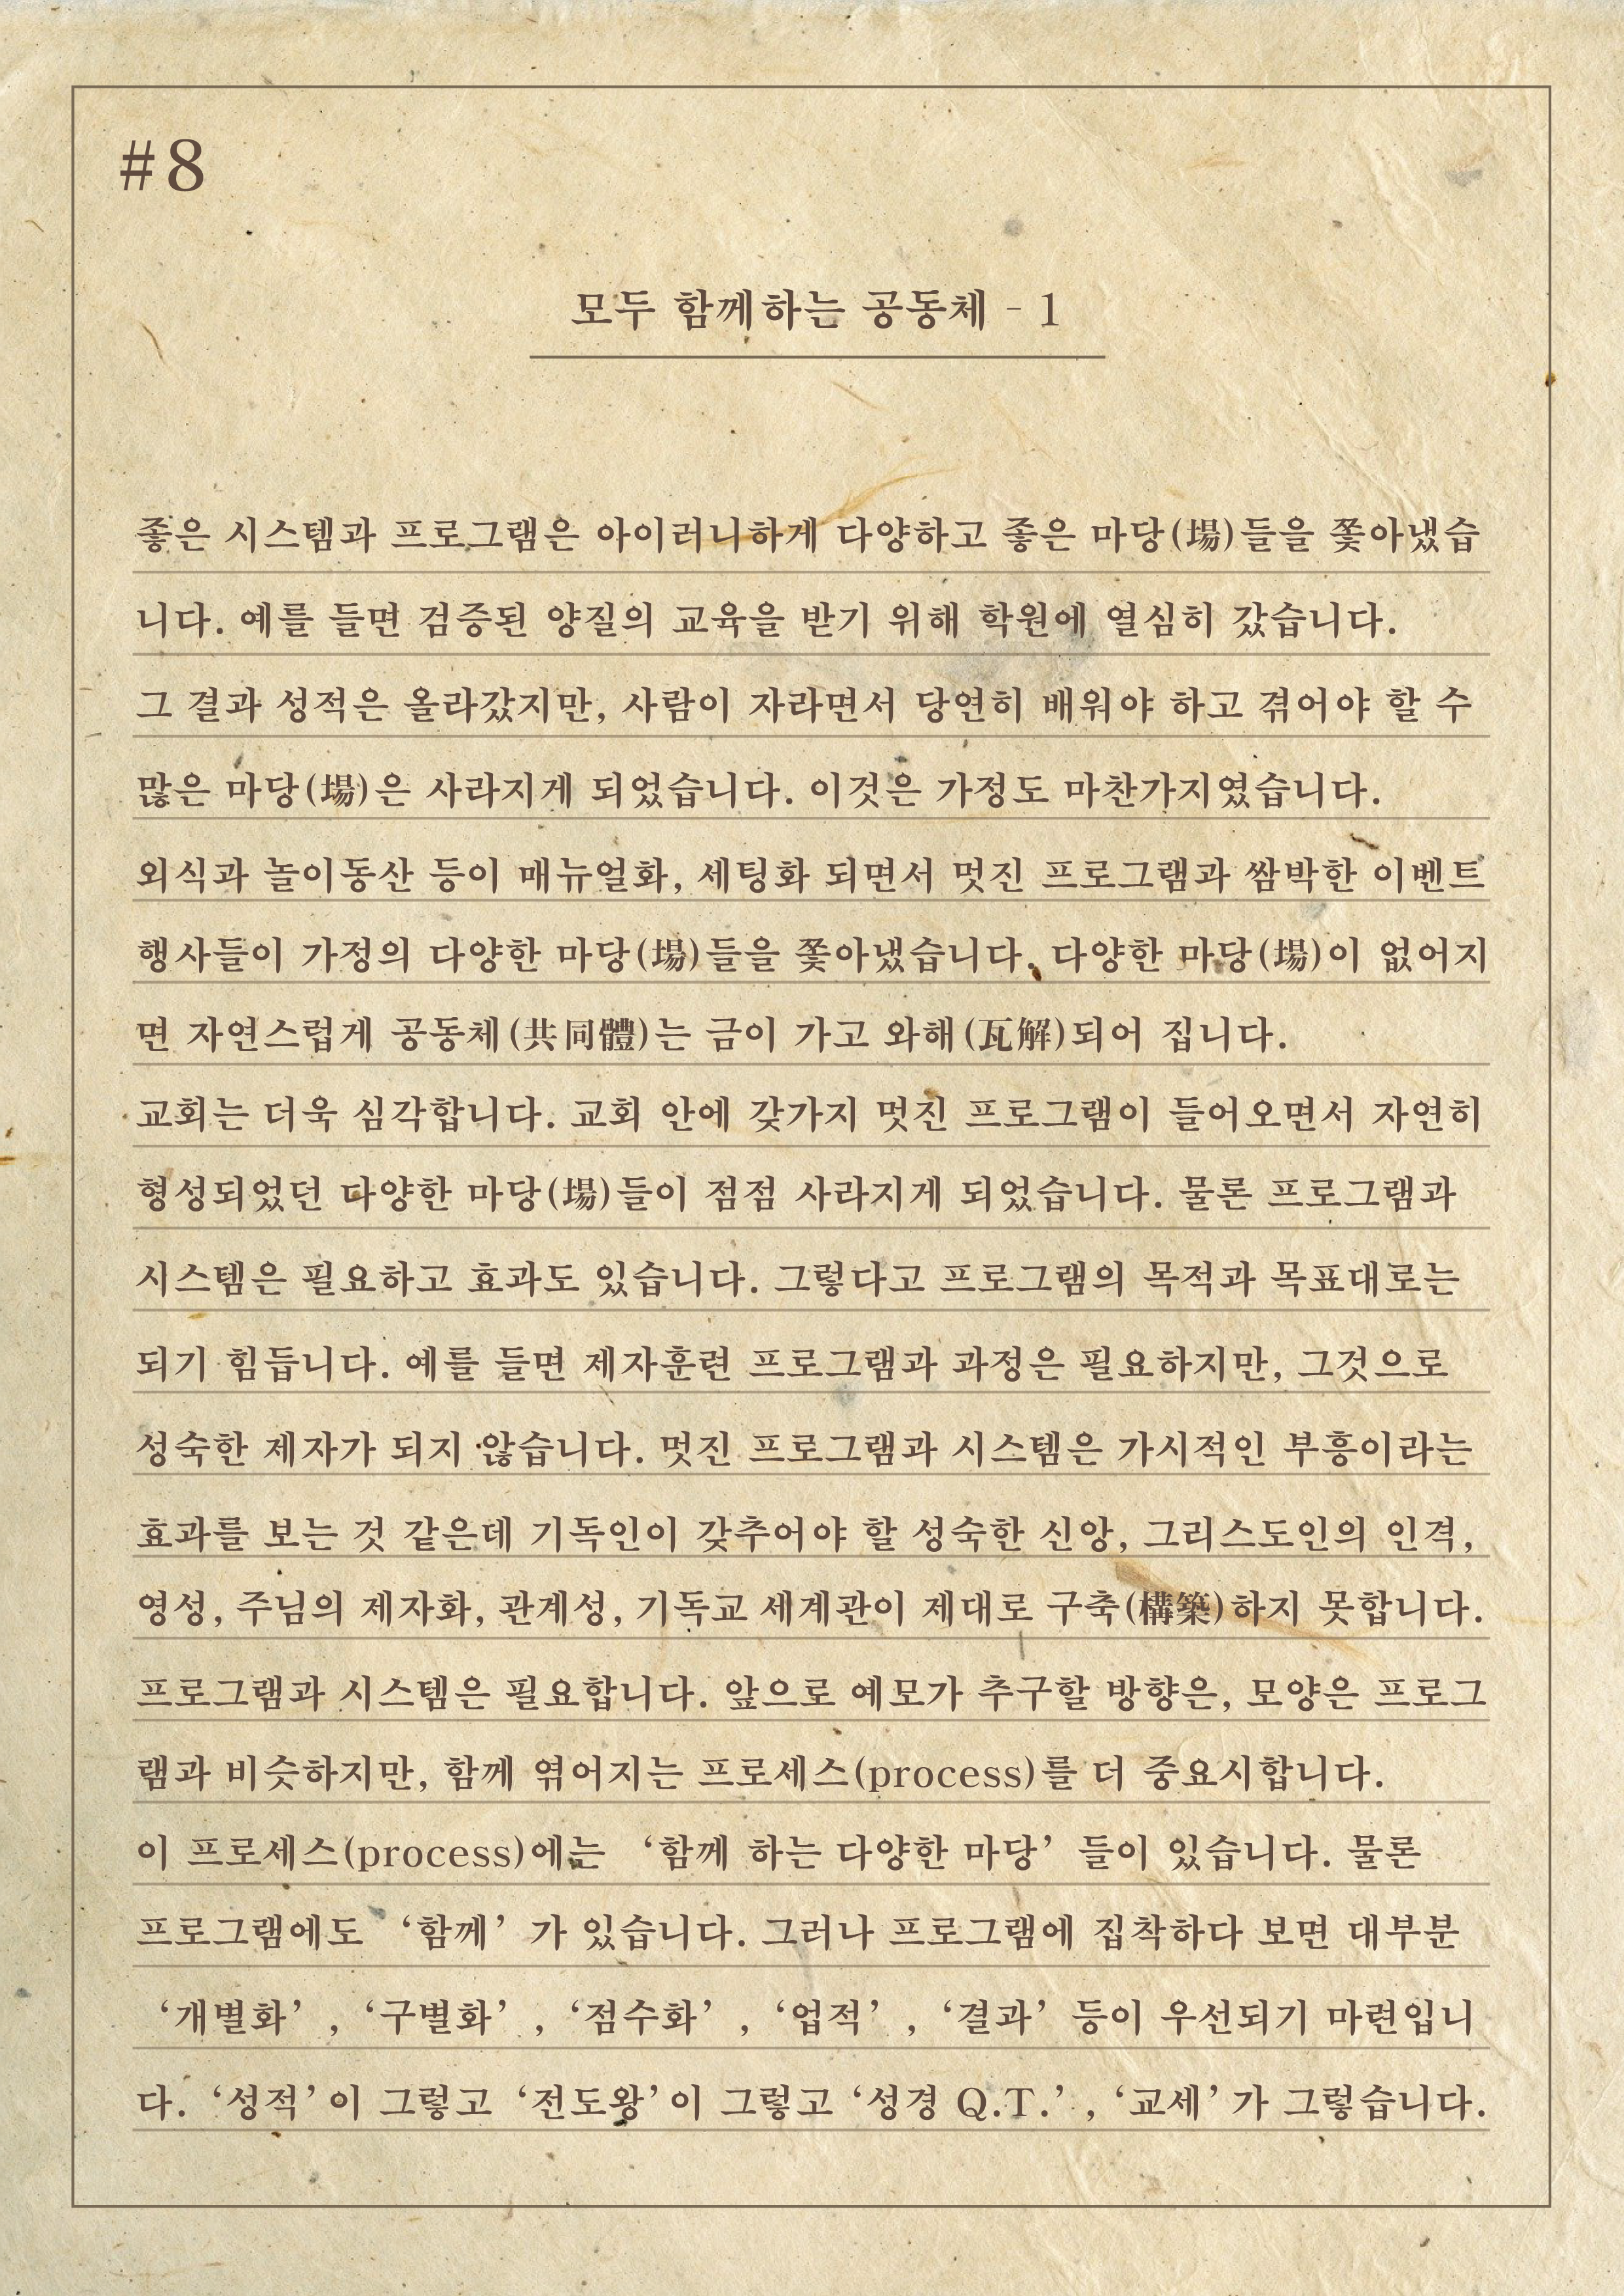 #8
모두 함께하는 공동체 - 1
좋은 시스템과 프로그램은 아이러니하게 다양하고 좋은 마당(場)들을 쫓아냈습
니다. 예를 들면 검증된 양질의 교육을 받기 위해 학원에 열심히 갔습니다.
그 결과 성적은 올라갔지만, 사람이 자라면서 당연히 배워야 하고 겪어야 할 수
많은 마당(場)은 사라지게 되었습니다. 이것은 가정도 마찬가지였습니다.
외식과 놀이동산 등이 매뉴얼화, 세팅화 되면서 멋진 프로그램과 쌈박한 이벤트
행사들이 가정의 다양한 마당(場)들을 쫓아냈습니다. 다양한 마당(場)이 없어지
면 자연스럽게 공동체(共同體)는 금이 가고 와해(瓦解)되어 집니다.
교회는 더욱 심각합니다. 교회 안에 갖가지 멋진 프로그램이 들어오면서 자연히
형성되었던 다양한 마당(場)들이 점점 사라지게 되었습니다. 물론 프로그램과
시스템은 필요하고 효과도 있습니다. 그렇다고 프로그램의 목적과 목표대로는
되기 힘듭니다. 예를 들면 제자훈련 프로그램과 과정은 필요하지만, 그것으로
성숙한 제자가 되지 않습니다. 멋진 프로그램과 시스템은 가시적인 부흥이라는
효과를 보는 것 같은데 기독인이 갖추어야 할 성숙한 신앙, 그리스도인의 인격,
영성, 주님의 제자화, 관계성, 기독교 세계관이 제대로 구축(構築)하지 못합니다.
프로그램과 시스템은 필요합니다. 앞으로 예모가 추구할 방향은, 모양은 프로그
램과 비슷하지만, 함께 엮어지는 프로세스(process)를 더 중요시합니다.
이 프로세스(process)에는 ‘함께 하는 다양한 마당’ 들이 있습니다. 물론
프로그램에도 ‘함께’ 가 있습니다. 그러나 프로그램에 집착하다 보면 대부분
‘개별화’ , ‘구별화’ , ‘점수화’ , ‘업적’ , ‘결과’ 등이 우선되기 마련입니
다. ‘성적’이 그렇고 ‘전도왕’이 그렇고 ‘성경 Q.T.’ , ‘교세’ 가 그렇습니다.